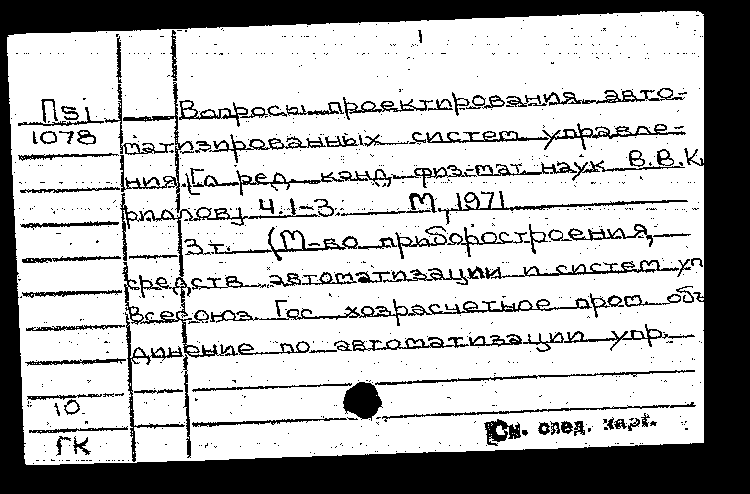 1
Пsi
1078
Вопросы проектирования авто-
матизированных систем управле-
ния. [Гл. ред. канд. физ.-мат. наук В.В.К
рилов] Ч.1-3. М., 1971
3 т. (М-во приборостроения,
средств автоматизации и систем уп
Всесоюз. Гос. хозрасчетное пром. объ
динение по автоматизации упр.
10
ГК
См. след. карт.